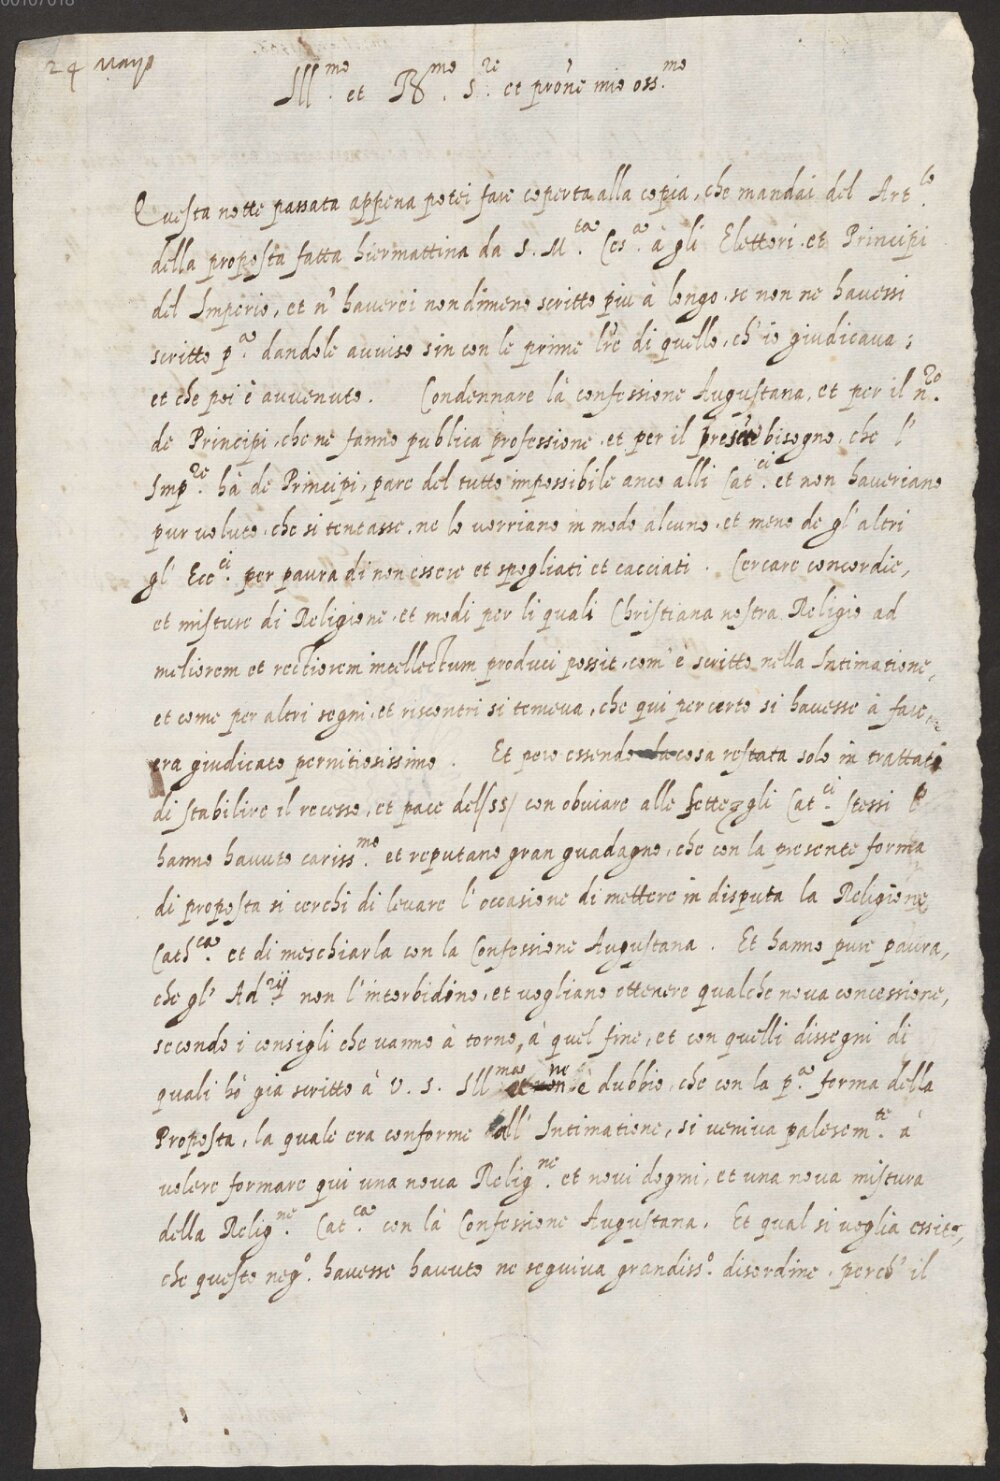 00107018
24 Mayo
Ill.mo et R.mo S.re et pron̄e mio oss.mo
Questa notte passata appena potei fare coperta alla copia, che mandai del Art.lo
della proposta fatta hiermattina da S. M.ta Ces.a à gli Elettori et Principi
del Imperio, et n' haverei nondimeno scritto piu à longo, se non ne havessi
scritto p.a dandole avviso sin con le prime lr̄e di quello, ch' io giudicava;
et che poi è avvenuto. Condennare la confessione Augustana, et per il n.ro
de Principi, che ne fanno publica professione, et per il presēte bisogno, che l'
Imp.re hà de Principi, pare del tutto impossibile anco alli Cat.ci et non haveriano
pur voluto, che si tentasse, ne lo vorriano in modo alcuno, et meno de gl' altri
gl' Ecc.ci per paura di non essere et spogliati et cacciati. Cercare concordie,
et misture di Religione, et modi per li quali Christiana nostra Religio ad
meliorem et rectiorem intellectum produci possit, com' è scritto nella Intimatione,
et come per altri segni, et riscontri si temeva, che qui per certo si havesse à fare,
era giudicato pernitiosissimo. Et pero essendo la cosa restata solo in trattati
di stabilire il recesso, et pace del /55/ con obviare alle sette, gli Cat.ci stessi l'
hanno havuto cariss.mo et reputano gran guadagno, che con la presente forma
di proposta si cerchi di levare l' occasione di mettere in disputa la Religione
Cath.ca et di meschiarla con la Confessione Augustana. Et hanno pure paura,
che gl' Ad.rij non l' intorbidino, et vogliano ottenere qualche nova concessione,
secondo i consigli che vanno à torno, à quel fine, et con quelli dissegni di
quali hò già scritto à V. S. Ill.ma ne è dubbio, che con la p.a forma della
Proposta, la quale era conforme all' Intimatione, si veniva palesem.te à
volere formare qui una nova Relig.ne et novi dogmi, et una nova mistura
della Relig.ne Cat.ca con la Confessione Augustana. Et qual si voglia essito,
che questo neg.o havesse havuto ne seguiva grandiss.o disordine, perch' il